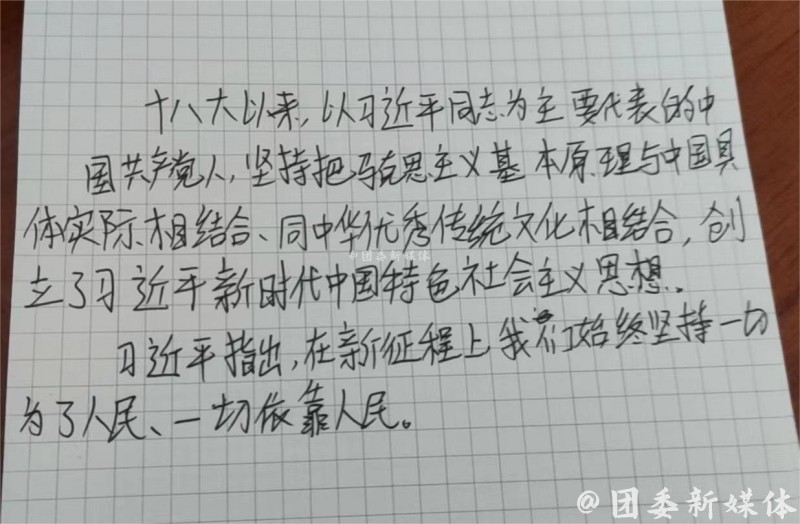 十八大以来,以习近平同志为主要代表的中
国共产党人,坚持把马克思主义基本原理与中国具
体实际相结合、同中华优秀传统文化相结合,创
立了习近平新时代中国特色社会主义思想。
习近平指出,在新征程上我们始终坚持一切
为了人民、一切依靠人民。
@团委新媒体
@团委新媒体